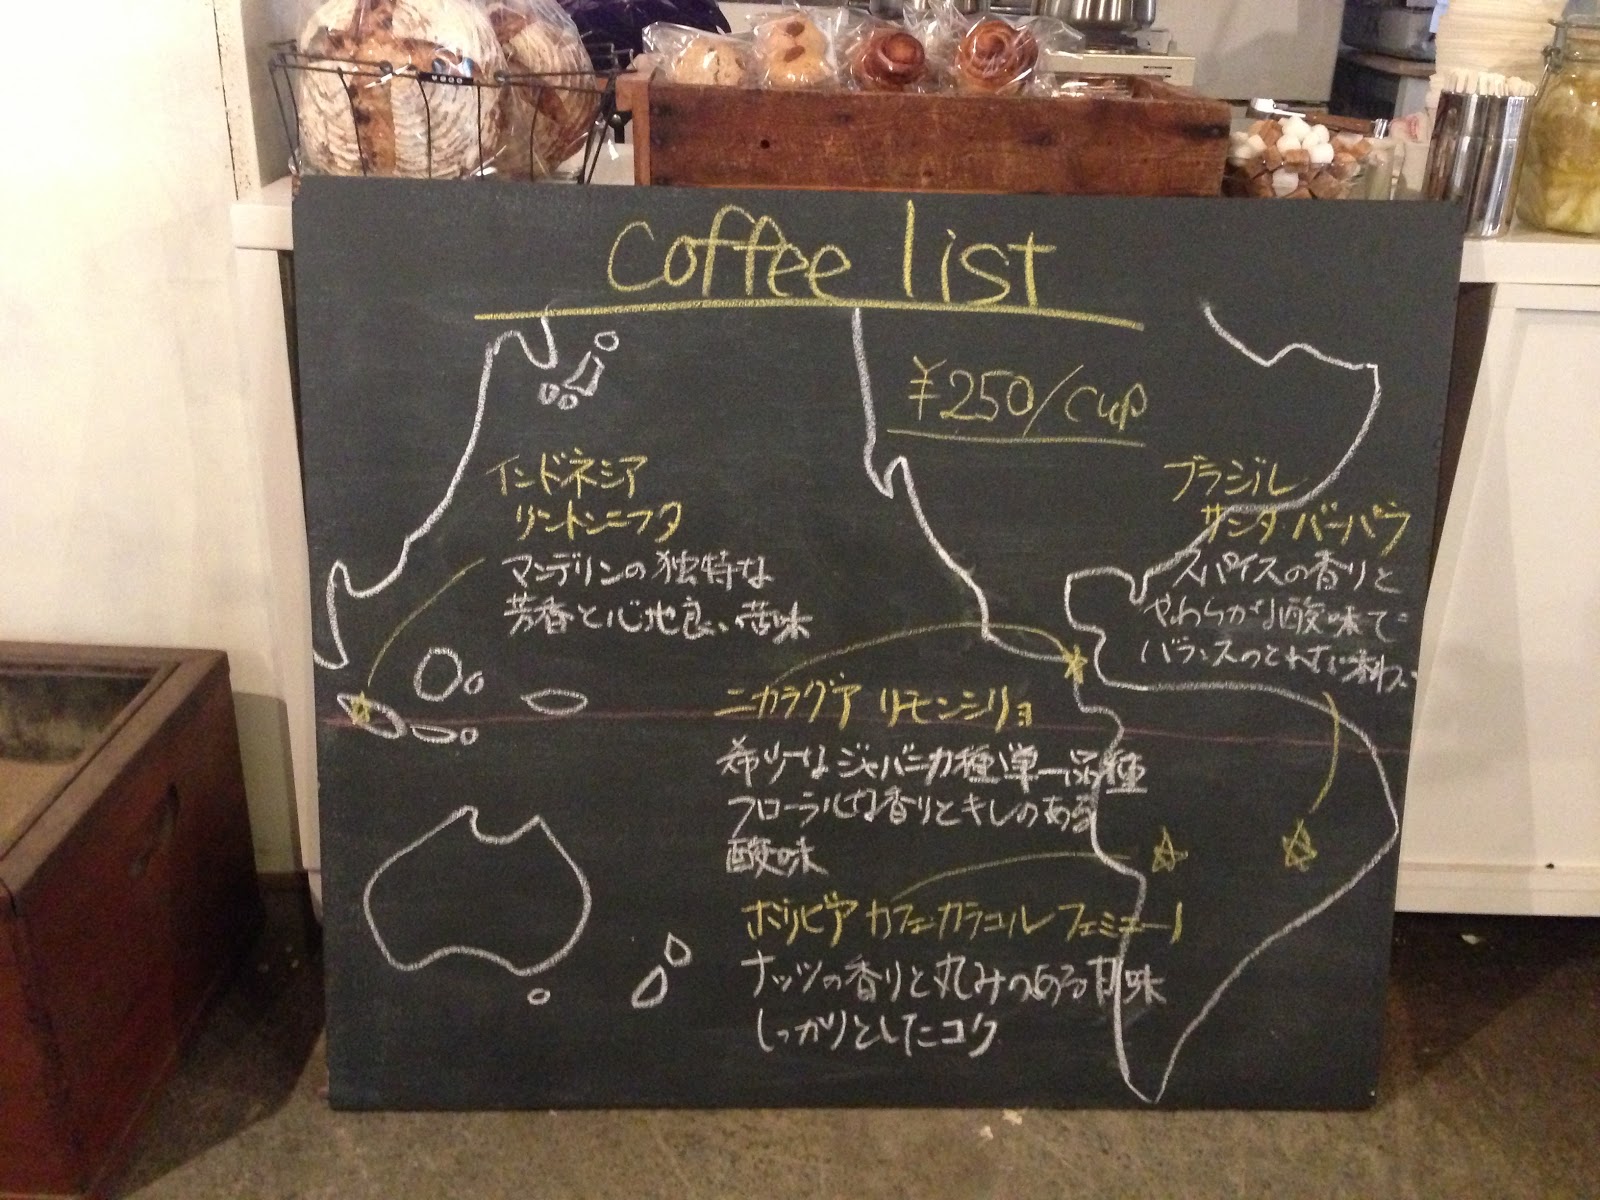 coffee list
¥250/cup
インドネシア
リントンニフタ
マンデリンの独特な
芳香と心地良い苦味
ブラジル
サンタバーバラ
スパイスの香りと
やわらかな酸味で
バランスのとれた味わい
ニカラグア リモンシリョ
希少なジャバニカ種単一品種
フローラルな香りとキレのある
酸味
ボリビア カフェカラコルフェミニーノ
ナッツの香りと丸みのある甘味
しっかりとしたコク